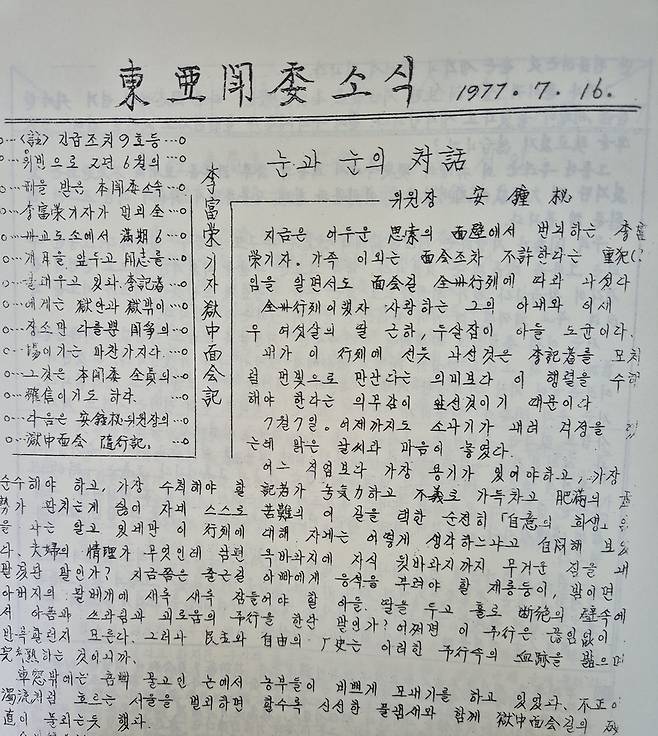 東亜闘委소식 1977. 7. 16.
o…〈註〉긴급조치9호등…o
o…위반으로 2년 6월의…o
o…형을 받은 本闘委소속…o
o…李富榮기자가 현재 全…o
o…州교도소에서 滿期 6…o
o…개月을 앞두고 闘志를…o
o…불태우고 있다. 李記者…o
o…에게는 獄안과 獄밖이…o
o…장소만 다를뿐 闘争의…o
o…場이기는 마찬가지다.…o
o…그것은 本闘委 全員의…o
o…確信이기도 하다.…o
o…다음은 安鍾柲위원장의…o
o…獄中面会 隨行記.…o
李富榮기자 獄中面会記
눈과 눈의 対話
위원장 安鍾柲
지금은 어두운 思索의 面壁에서 번뇌하는 李富
榮기자. 가족 이외는 面会조차 不許한다는 重犯
임을 알면서도 面会길 全州行列에 따라 나섰다
全州行列이랬자 사랑하는 그의 아내와 이제
우 여섯살의 딸 근하, 두살잡이 아들 도균이다.
내가 이 行列에 선뜻 나선것은 李記者를 모처
럼 먼빛으로 만난다는 의미보다 이 행렬을 수행
해야 한다는 의무감이 앞선것이기 때문이다
7月7日. 어제까지도 소나기가 내려 걱정을 했
는데 맑은 날씨와 마음이 놓였다.
어느 직업보다 가장 용기가 있어야하고, 가장
순수해야 하고, 가장 수척해야 할 記者가 非気力하고 不義로 가득차고 肥滿의
勢가 판치는게 싫어 자네 스스로 苦難의 이 길을 택한 순전히 「自意의 희생」
을 나는 알고 있네만 이 行列에 대해 자네는 어떻게 생각하느냐고 自問해 보았
다. 夫婦의 情理가 무엇인데 남편 옥바라지에 자식 뒷바라지까지 무거운 짐을
말인가? 지금쯤은 출근길 아빠에게 응석을 부려야 할 재롱둥이, 밤이면
아버지의 팔베개에 새록 새록 잠들어야 할 아들. 딸을 두고 홀로 断絶의 壁속에
서 아픔과 쓰라림과 괴로움의 予行을 한단 말인가? 어쩌면 이 予行은 끊임없이
반복될런지 모른다. 그러나 民主와 自由의 广史는 이러한 予行속의 血跡을 밟으며
完熟하는 것이니까.
車窓밖에는 흠뻑 물고인 논에서 농부들이 바쁘게 모내기를 하고 있었다. 不正이
濁流처럼 흐르는 서울을 벗어나면 할수록 신선한 풀냄새와 함께 獄中面会길의
直이 돋뵈는듯 했다.